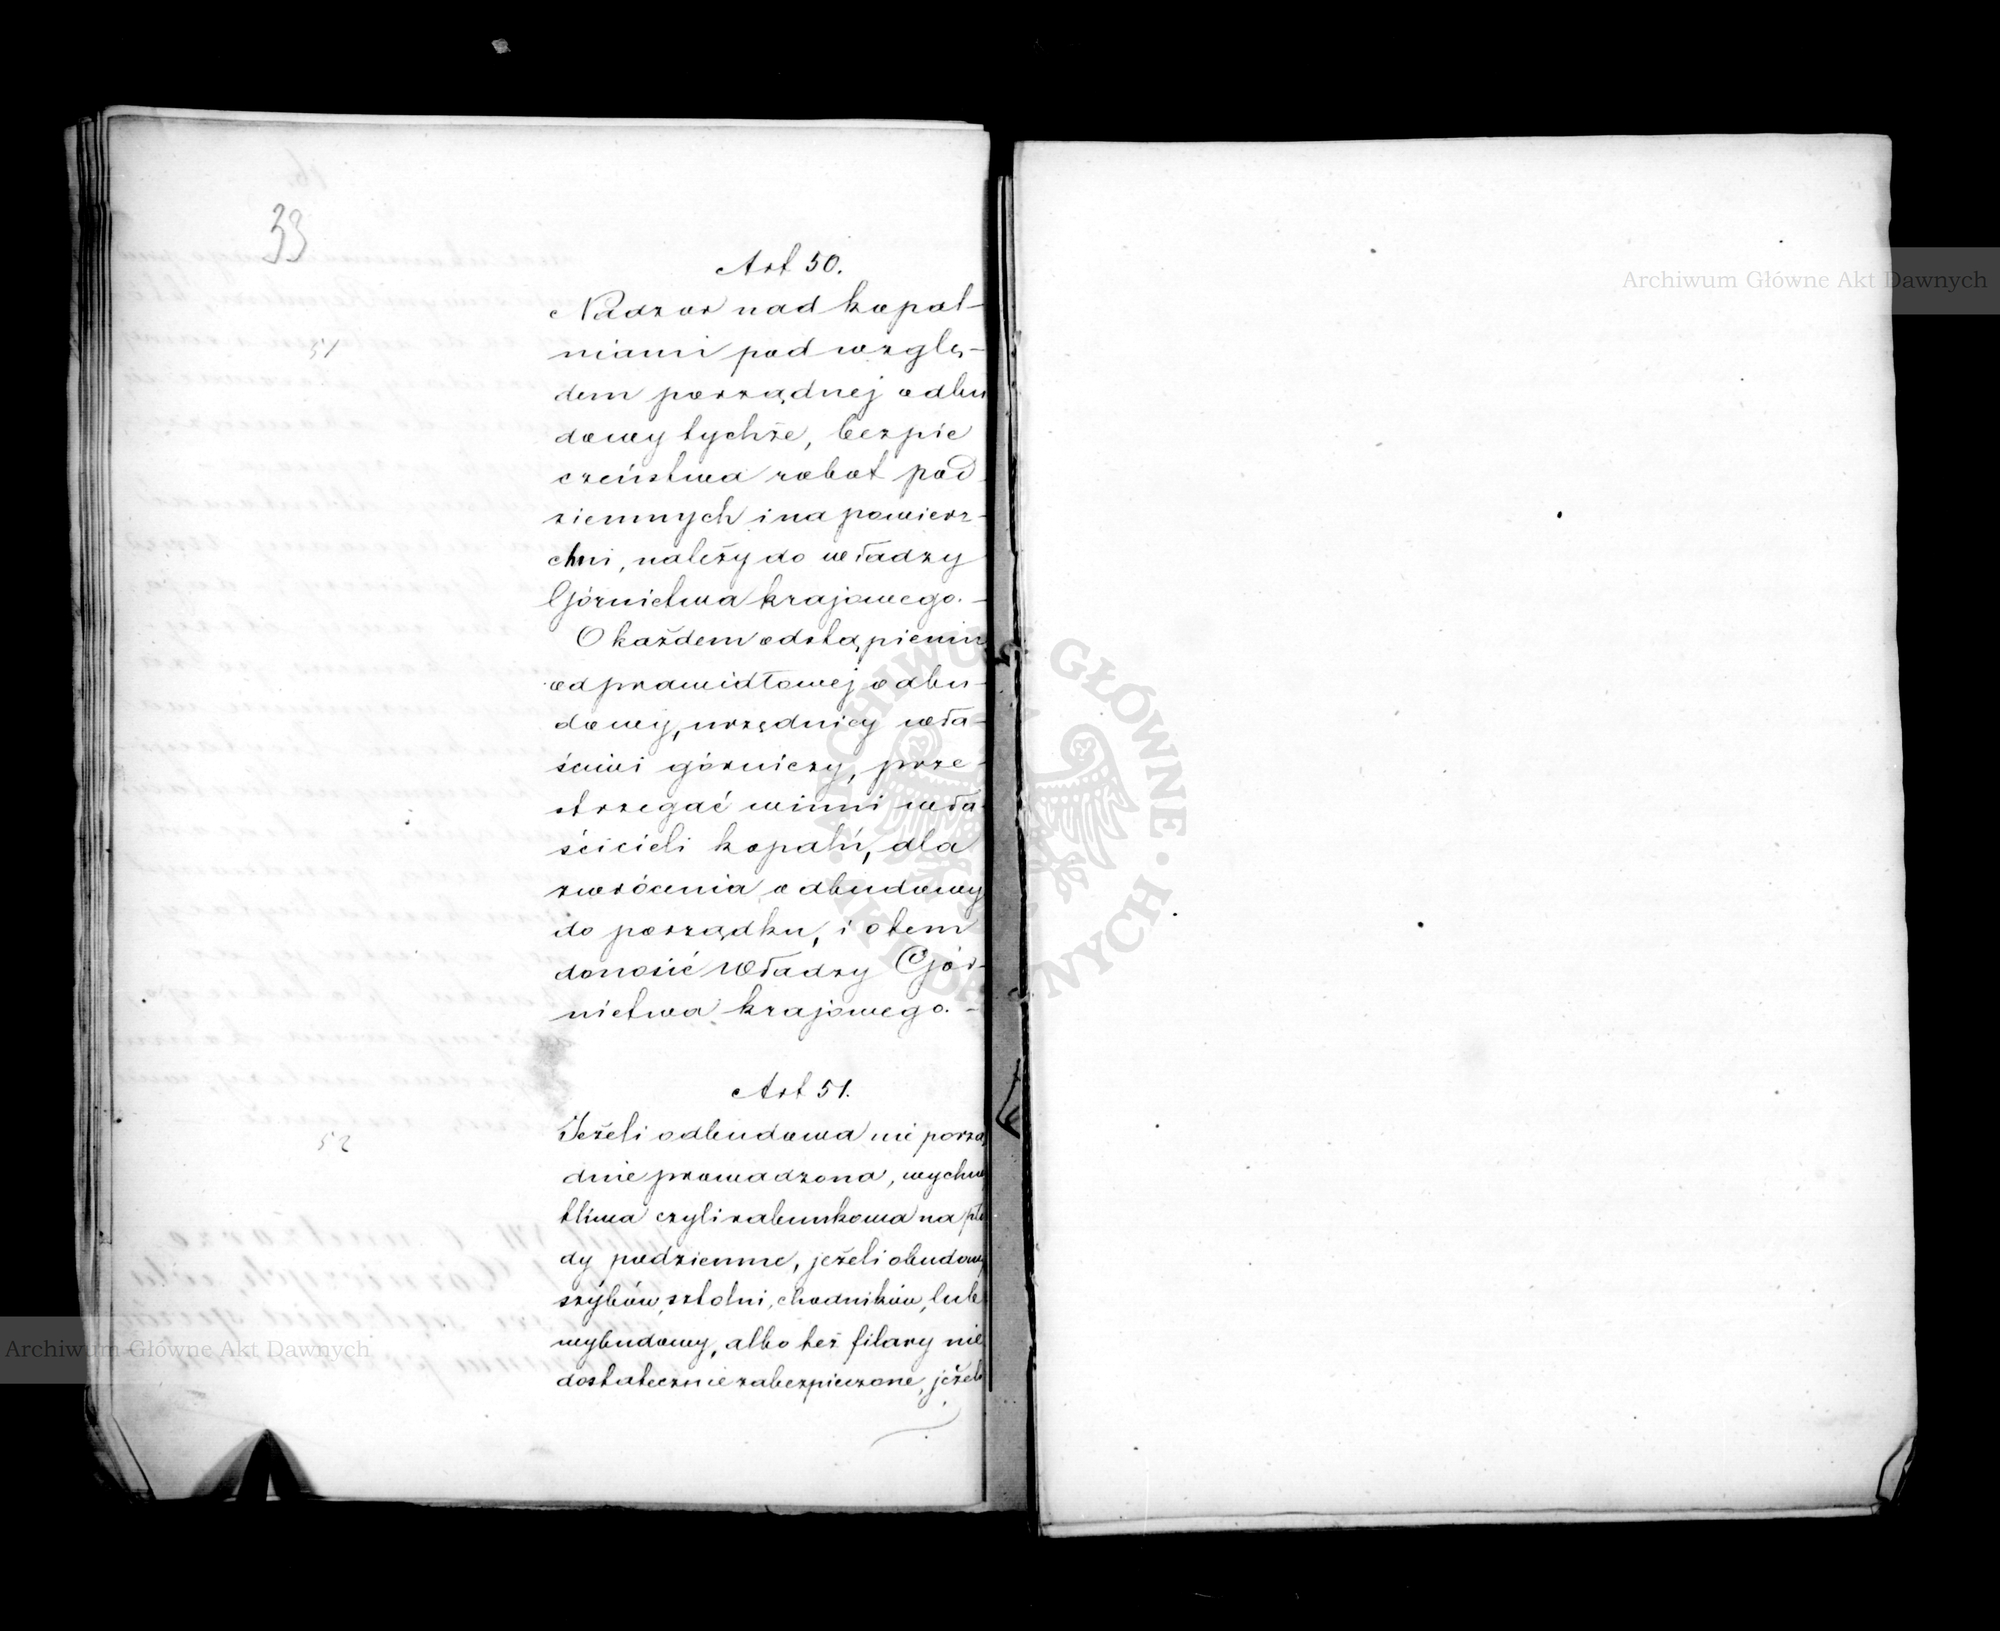 33
Art 50.
Nadzor nad kopal-
niami pod wzglę-
dem porządnej odbu
dowy tychże, bezpie
czeństwa robot pod
ziemnych i na powierz-
chni, należy do władzy
Górnictwa krajowego. -
O każdem odstąpieniu
od prawidłowej odbu-
dowy, urzędnicy wła-
ściwi górniczy, prze-
strzegać winni wła-
ścicieli kopalń, dla
zwrócenia odbudowy
do porządku, i o tem
donosić Władzy Gór-
nictwa krajowego. -
51
Art 51.
Jeżeli odbudowa nie porzą
dnie prowadzona, wychwy
tliwa czyli rabunkowa na pło
dy podziemne, jeżeli obudowy
szybów, sztolni, chodników, lub
wybudowy, albo też filary nie
dostatecznie zabezpieczone, jeżeli
52
Archiwum Główne Akt Dawnych
Archiwum Główne Akt Dawnych
ARCHIWUM GŁÓWNE AKT DAWNYCH